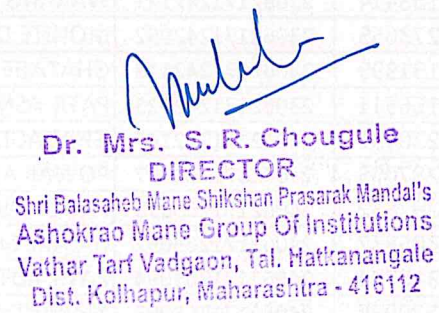 Dr. Mrs. S. R. Chougule
DIRECTOR
Shri Balasaheb Mane Shikshan Prasarak Mandal's
Ashokrao Mane Group Of Institutions
Vathar Tarf Vadgaon, Tal. Hatkanangale
Dist. Kolhapur, Maharashtra - 416112